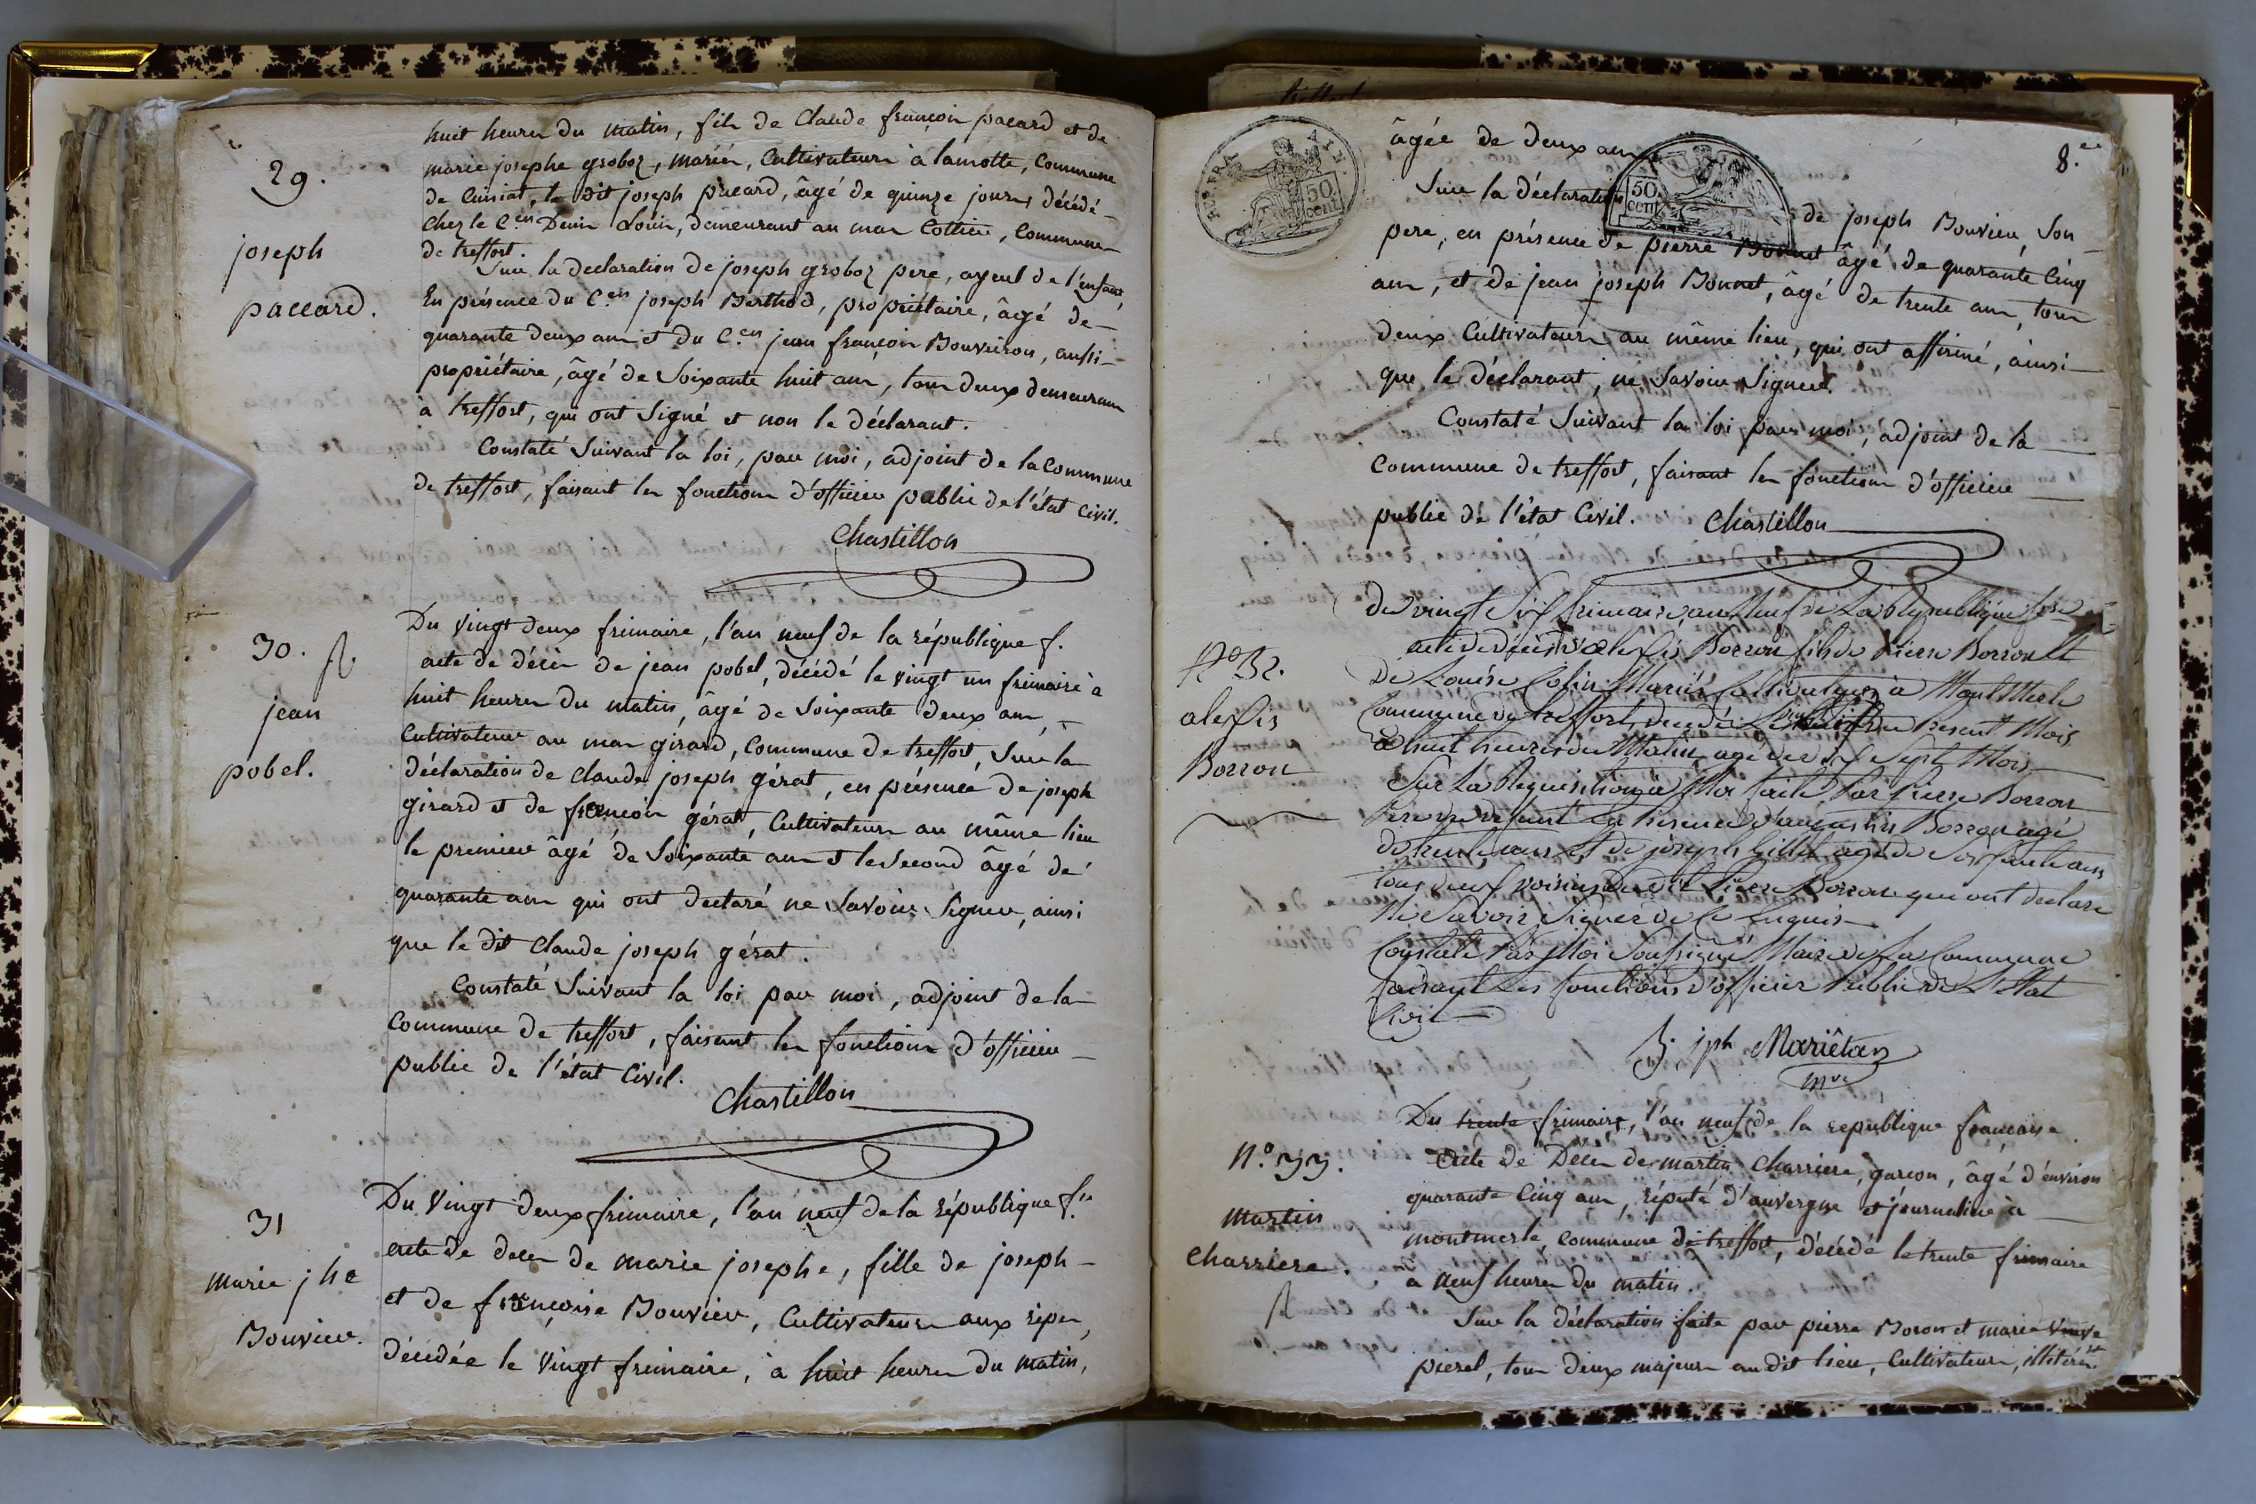 29.
joseph
paccard.
huit heures du matin, fils de Claude françois pacard et de
marie josephe groboz, mariés, Cultivateurs à lamotte, Commune
de Cuisiat, le dit joseph pacard, âgé de quinze jours, décédé
chez le C.en Denis Louis, demeurant au mas Cottier, Commune
de treffort.
Sur la declaration de joseph groboz pere, ayeul de l'enfant,
En présence du C.en joseph Berthod, propriétaire, âgé de
quarante deux ans et du C.en jean françois Bouvieron, aussi
propriétaire, âgé de Soixante huit ans, tous deux demeurans
à treffort, qui ont Signé et non le déclarant.
Constaté Suivant la loi, par moi, adjoint de la Commune
de treffort, faisant les fonctions d'officier public de l'état Civil.
Chastillon
30.
jean
pobel.
Du Vingt deux frimaire, l'an neuf de la république f.
acte de décès de jean pobel, décédé le vingt un frimaire à
huit heures du matin, âgé de Soixante deux ans,
Cultivateur au mas girard, Commune de treffort, Sur la
déclaration de claude joseph gérat, en présence de joseph
girard et de françois gérat, Cultivateurs au même lieu
le premier âgé de Soixante ans et le Second âgé de
quarante ans qui ont declaré ne Savoir Signer, ainsi
que le dit Claude joseph gérat.
Constaté Suivant la loi par moi, adjoint de la
Commune de treffort, faisant les fonctions d'officier
public de l'état Civil.
Chastillon
31
marie jhe
Bouvier.
Du Vingt deux frimaire, l'an neuf de la république f.se
acte de deces de marie josephe, fille de joseph
et de françoise Bouvier, Cultivateurs aux ripes,
décédée le Vingt frimaire, à huit heures du matin,
8.e
50 cent
50 cent
âgée de deux ans
Sur la déclaration de joseph Bouvier, Son
pere, en présence de pierre Bonnet âgé de quarante Cinq
ans, et de jean joseph Bonnet, âgé de trente ans, tous
deux Cultivateurs au même lieu, qui ont affirmé, ainsi
que le déclarant, ne Savoir Signer.
Constaté Suivant la loi par moi, adjoint de la
Commune de treffort, faisant les fonctions d'officier
public de l'état Civil.
Chastillon
N° 32.
alexis
Borron
du vingt Six frimaire an Neuf de La Republique fse
acte de décès d'alexis Borron fils de Pierre Borron et
de Louise Colin Mariés Cultivateurs à Montmerle
Commune de treffort decedé Le du present Mois
à huit heures du Matin agé de Sept Mois
Sur La Requisition à Moi faite Par Pierre Borron
Père du defunt En presence Borron agé
de trente ans Et de joseph Gillet agé de Soixante ans
tous deux voisins du dit Pierre Borron qui ont declaré
Ne Savoir Signer de Ce Enquis
Constaté Par Moi Soussigné Maire de La Commune
faisant Les fonctions d'officier Public de L'Etat
Civil
jph Mariêtan
mre
N.° 33.
martin
charriere.
Du trente frimaire, l'an neuf de la republique française
Acte de Décès de martin Charriere, garçon, âgé d'environ
quarante Cinq ans, réputé d'auvergne et journalier à
montmerle, commune de treffort, décédé le trente frimaire
a neuf heures du matin.
Sur la déclaration faite par pierre Boron et marie Veuve
pierel, tous deux majeurs au dit lieu, Cultivateurs, illitérés